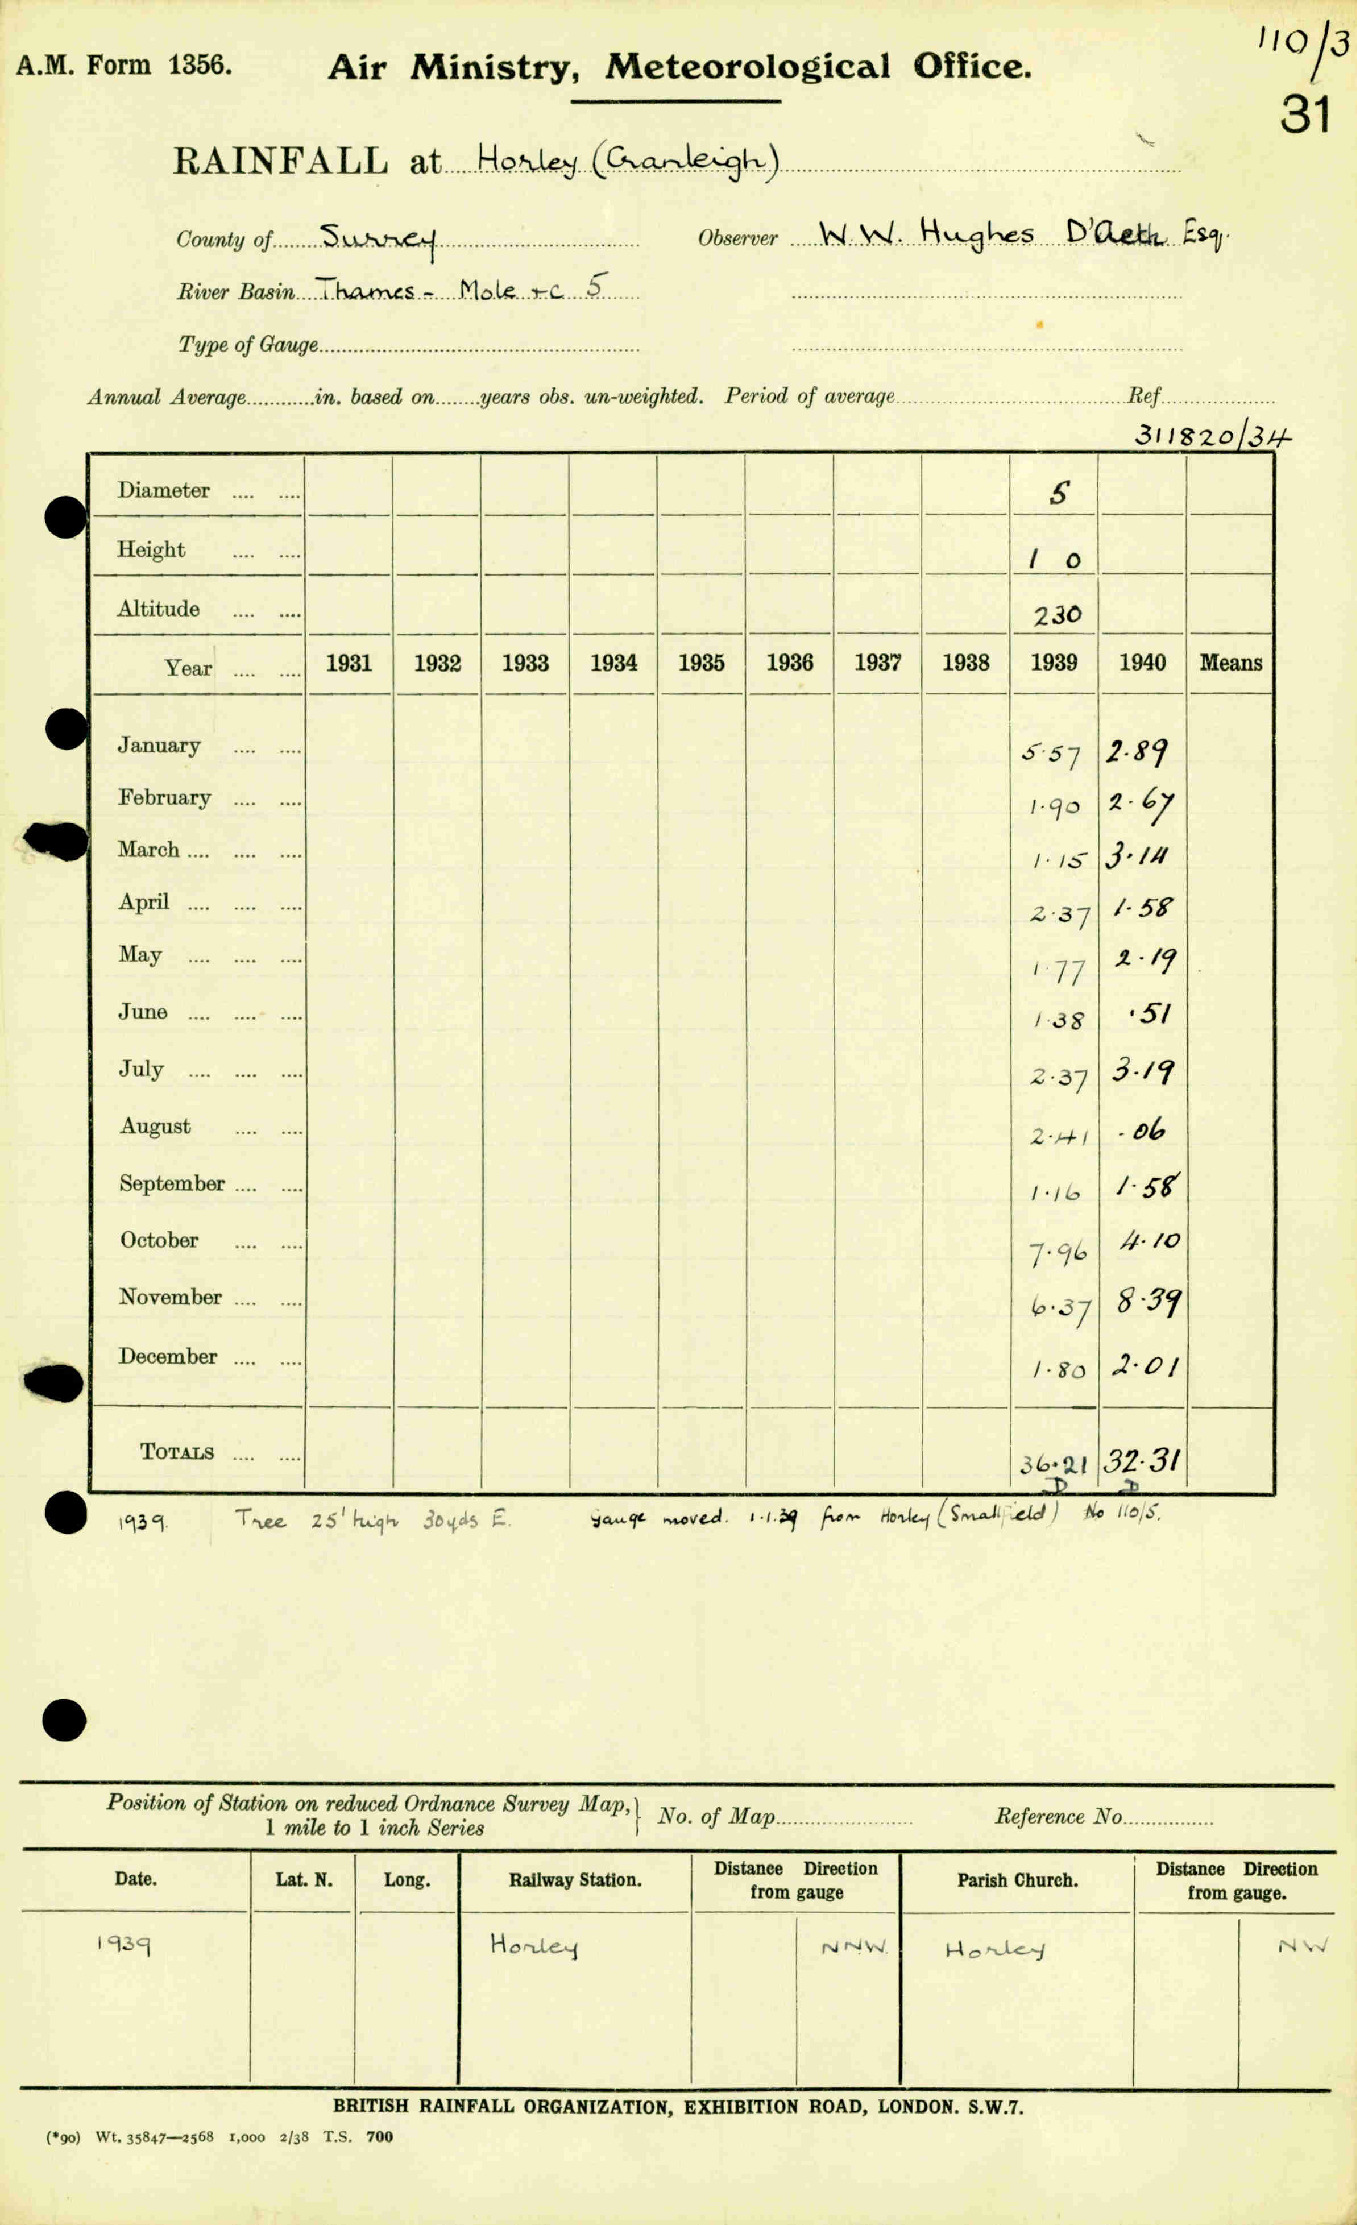 110/3
A.M. Form 1356. Air Ministry, Meteorological Office.
31
RAINFALL at Horley (Cranleigh)
County of Surrey Observer W.W. Hughes D'Aeth Esq.
River Basin Thames - Mole +c 5
Type of Gauge
Annual Average in. based on years obs. un-weighted. Period of average Ref.
311820/34
Diameter 5
Height 1 0
Altitude 230
Year 1931 1932 1933 1934 1935 1936 1937 1938 1939 1940 Means
January 5.57 2.89
February 1.90 2.67
March 1.15 3.14
April 2.37 1.58
May 1.77 2.19
June 1.38 .51
July 2.37 3.19
August 2.41 .06
September 1.16 1.58
October 7.96 4.10
November 6.37 8.39
December 1.80 2.01
TOTALS 36.21 32.31
D D
1939. Tree 25' high 30yds E. Gauge moved. 1.1.39 from Horley (Smallfield) No 110/5.
Position of Station on reduced Ordnance Survey Map, 1 mile to 1 inch Series } No. of Map Reference No.
Date. Lat. N. Long. Railway Station. Distance Direction from gauge Parish Church. Distance Direction from gauge.
1939 Horley NNW. Horley NW
BRITISH RAINFALL ORGANIZATION, EXHIBITION ROAD, LONDON. S.W.7.
(*90) Wt. 35847—2568 1,000 2/38 T.S. 700